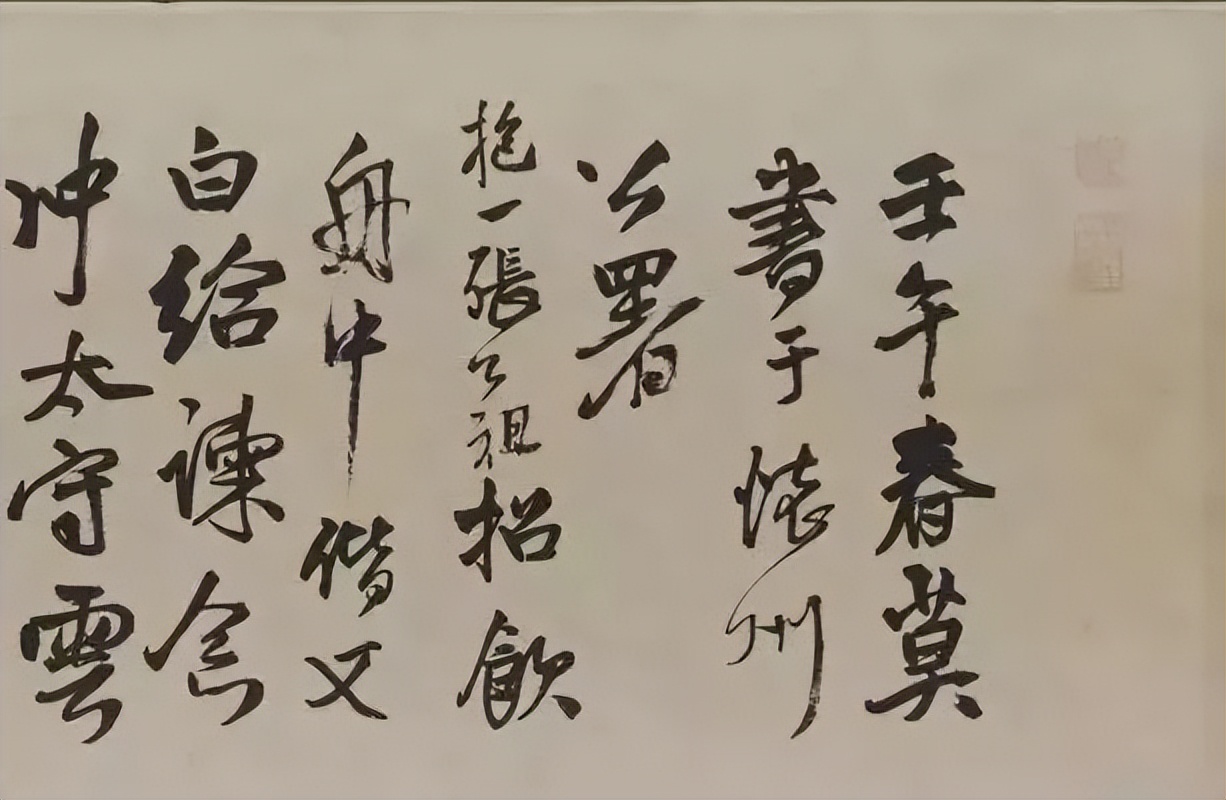 壬午春莫
書于懷州
公署
抱一張公祖招飲
舟中偕文
白給諫念
冲太守雲